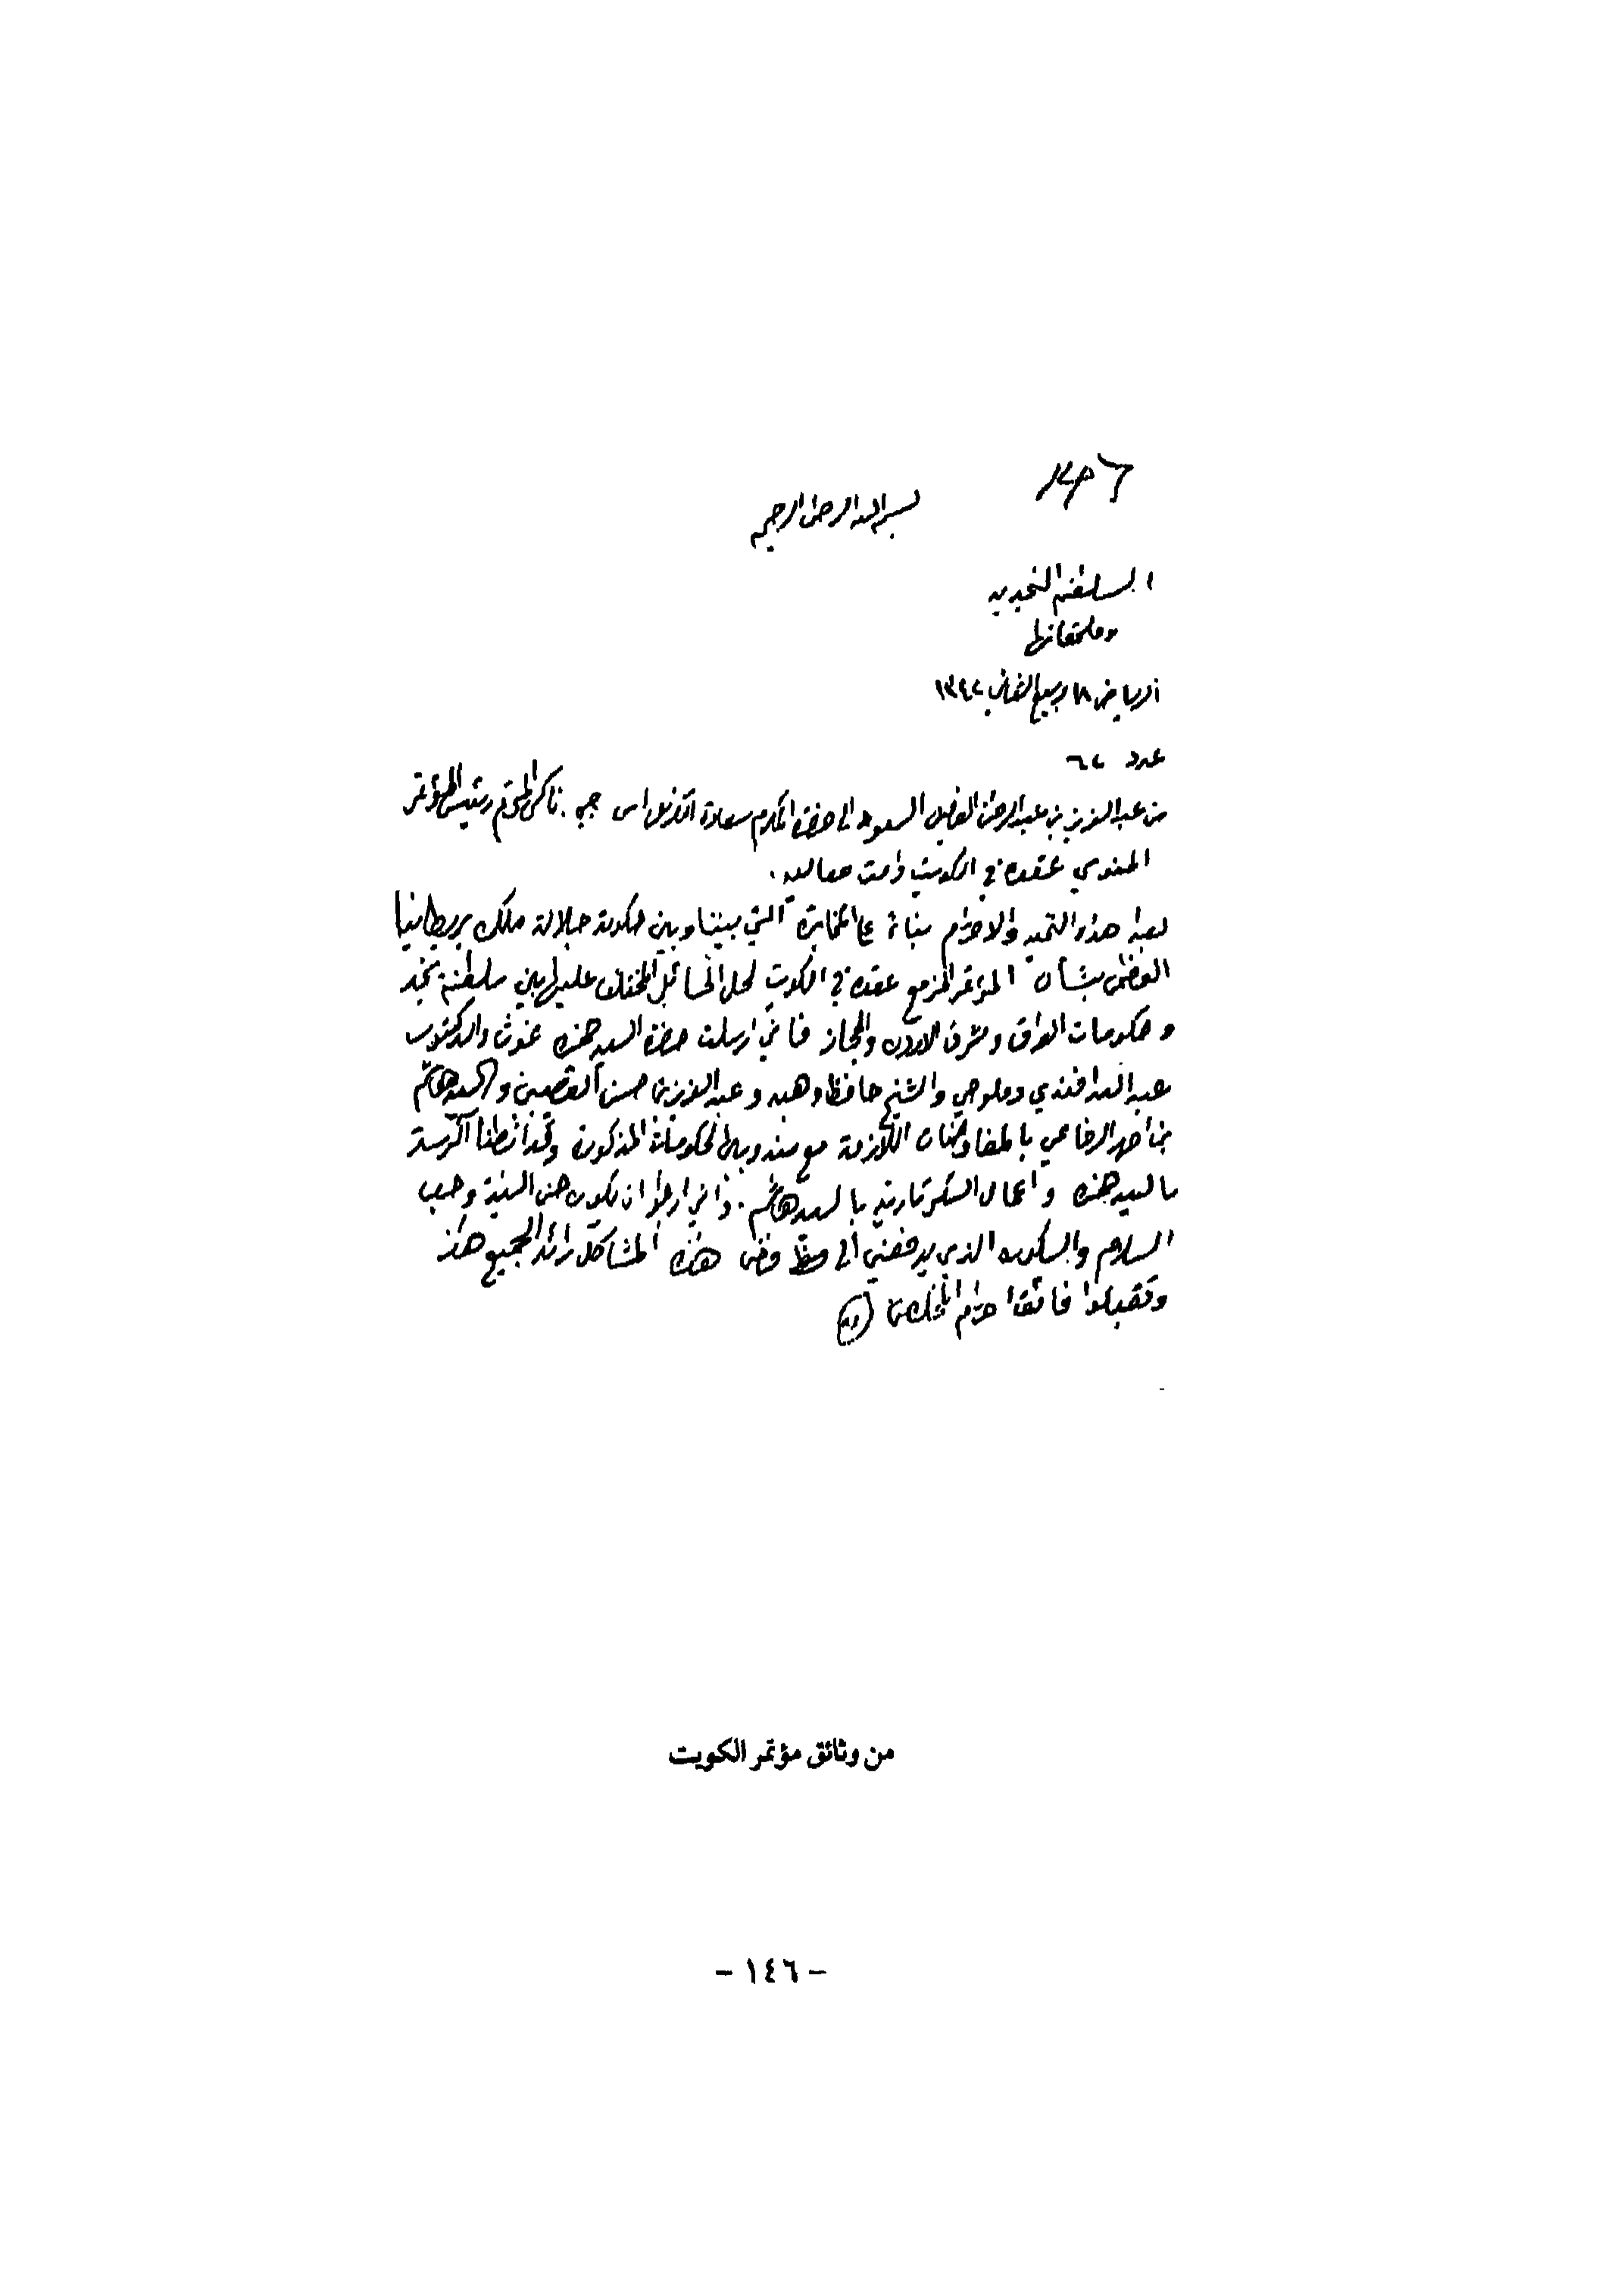 بسم الله الرحمن الرحيم
السلطنة النجدية
وملحقاتها
الرياض ١٨ ربيع الثاني ١٣٤٢
عدد ٦٧
من عبد العزيز بن عبد الرحمن الفيصل السعود الى حضرة المكرم سعادة الكرنل اس جي . ناكس المحترم رئيس المؤتمر
المنوي عقده في الكويت دامت معاليه .
بعد اهداء التحية والاحترام بناءً على المخابرة التي بيننا وبين حكومة جلالة ملك بريطانيا
العظمى بشأن المؤتمر المزمع عقده في الكويت لحل المسائل المختلف عليها بين سلطنة نجد
وحكومات العراق وشرق الاردن والحجاز فاني ارسلت حضرة السيد حمزه غوث والدكتور
عبد الله افندي دملوجي والشيخ حافظ وهبه وعبد العزيز بن حسن القصيبي والسيد هاشم
بن احمد الرفاعي بالمفاوضات اللازمة مع مندوبي الحكومات المذكورة وقد انطنا الرئسة
بالسيد حمزه واعمال السكرتارية بالسيد هاشم . واني ارجوا ان يكون حسن النية وحب
السلام والسكون الذي يدفعني الى فض هذه المشاكل رائد الجميع هذا
وتقبلوا فائق احترام المخلص
من وثائق مؤتمر الكويت
- ١٤٦ -